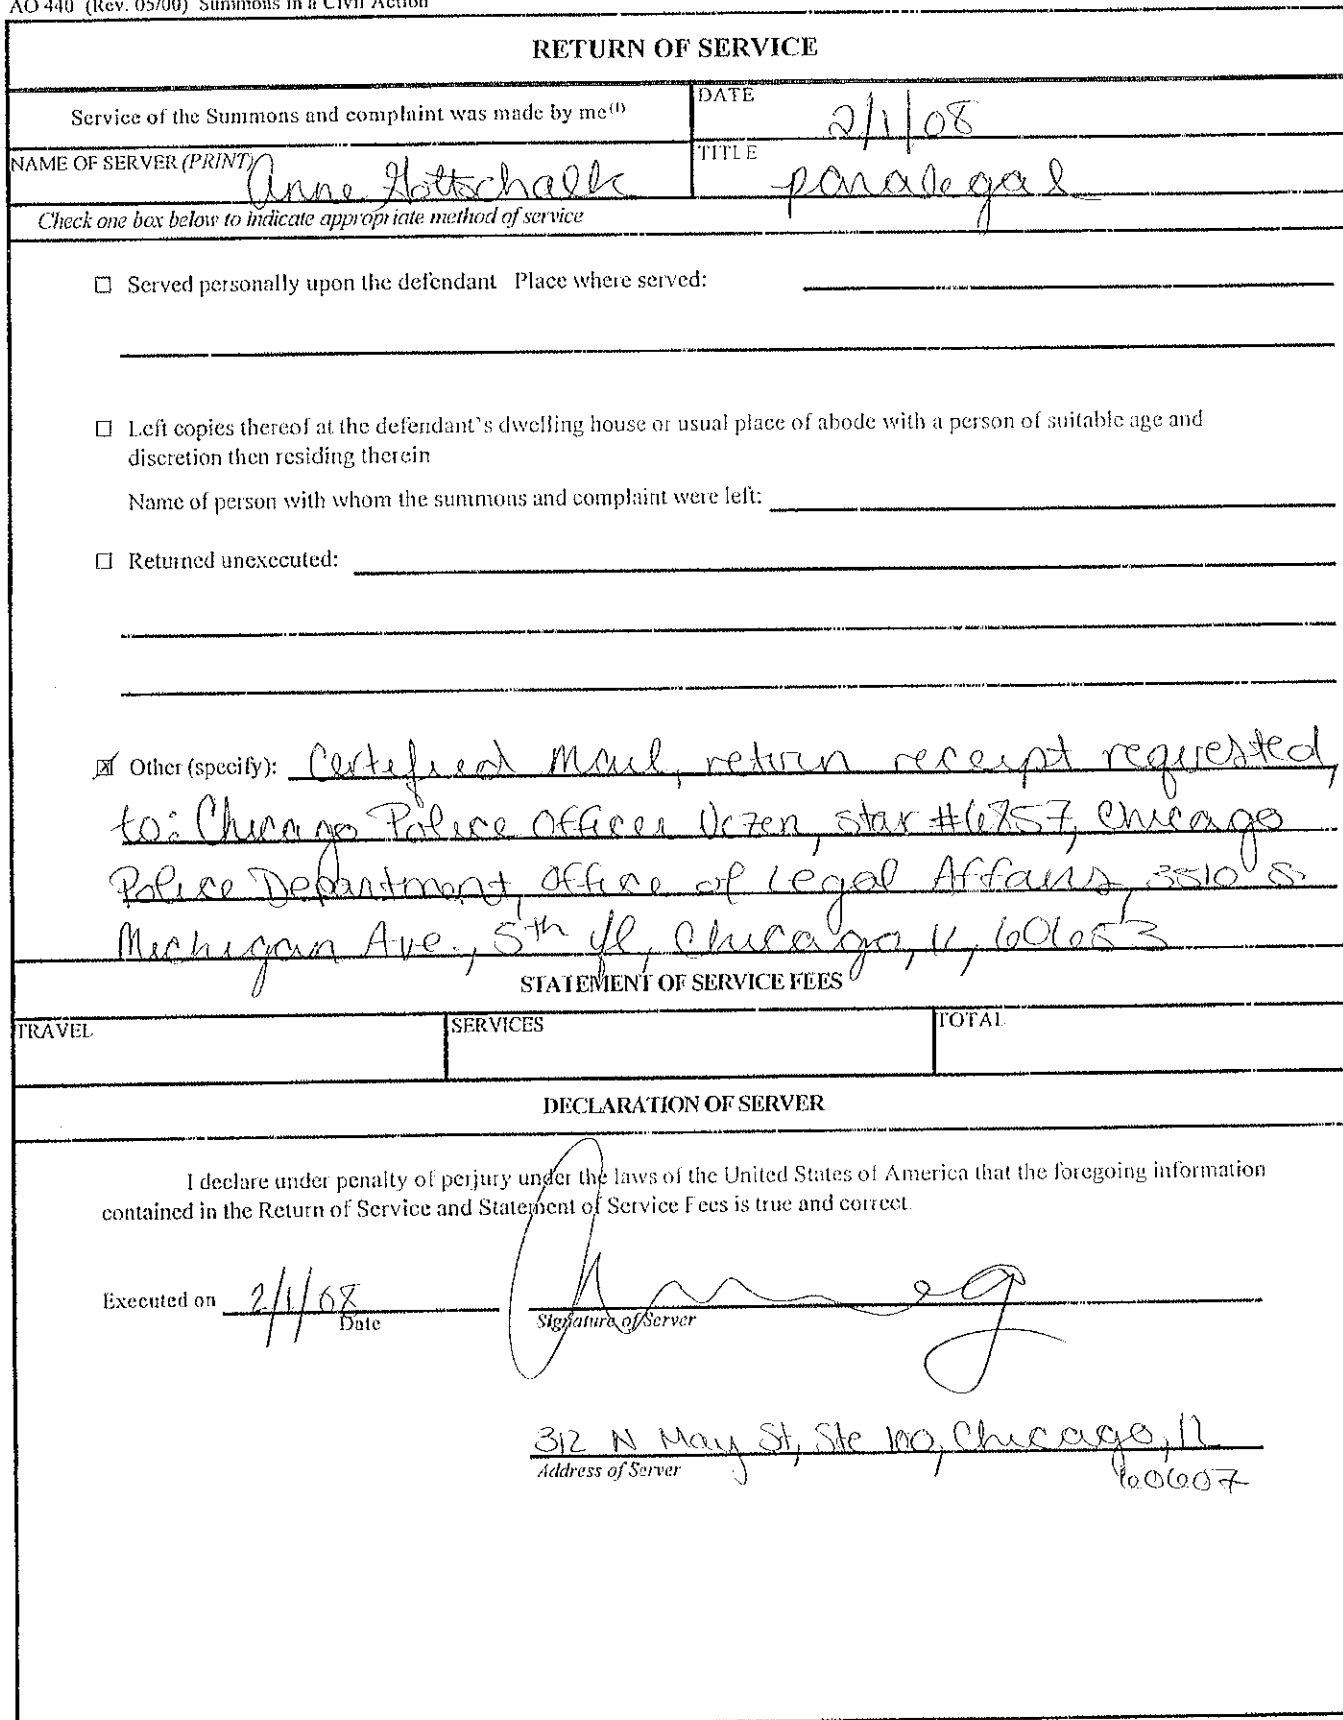 AO 440 (Rev. 05/00) Summons in a Civil Action
RETURN OF SERVICE
Service of the Summons and complaint was made by me(1)
DATE
2/1/08
NAME OF SERVER (PRINT)
Anne Gottschalk
TITLE
paralegal
Check one box below to indicate appropriate method of service
☐ Served personally upon the defendant Place where served:
☐ Left copies thereof at the defendant's dwelling house or usual place of abode with a person of suitable age and
discretion then residing therein
Name of person with whom the summons and complaint were left:
☐ Returned unexecuted:
☒ Other (specify): Certified Mail, return receipt requested,
to: Chicago Police Officer star #6857, Chicago
Police Department, Office of Legal Affairs, 3510 S.
Michigan Ave., 5th fl, Chicago, IL, 60653
STATEMENT OF SERVICE FEES
TRAVEL
SERVICES
TOTAL
DECLARATION OF SERVER
I declare under penalty of perjury under the laws of the United States of America that the foregoing information
contained in the Return of Service and Statement of Service Fees is true and correct.
Executed on 2/1/08
Date
Signature of Server
312 N May St, Ste 100, Chicago, IL
Address of Server
60607